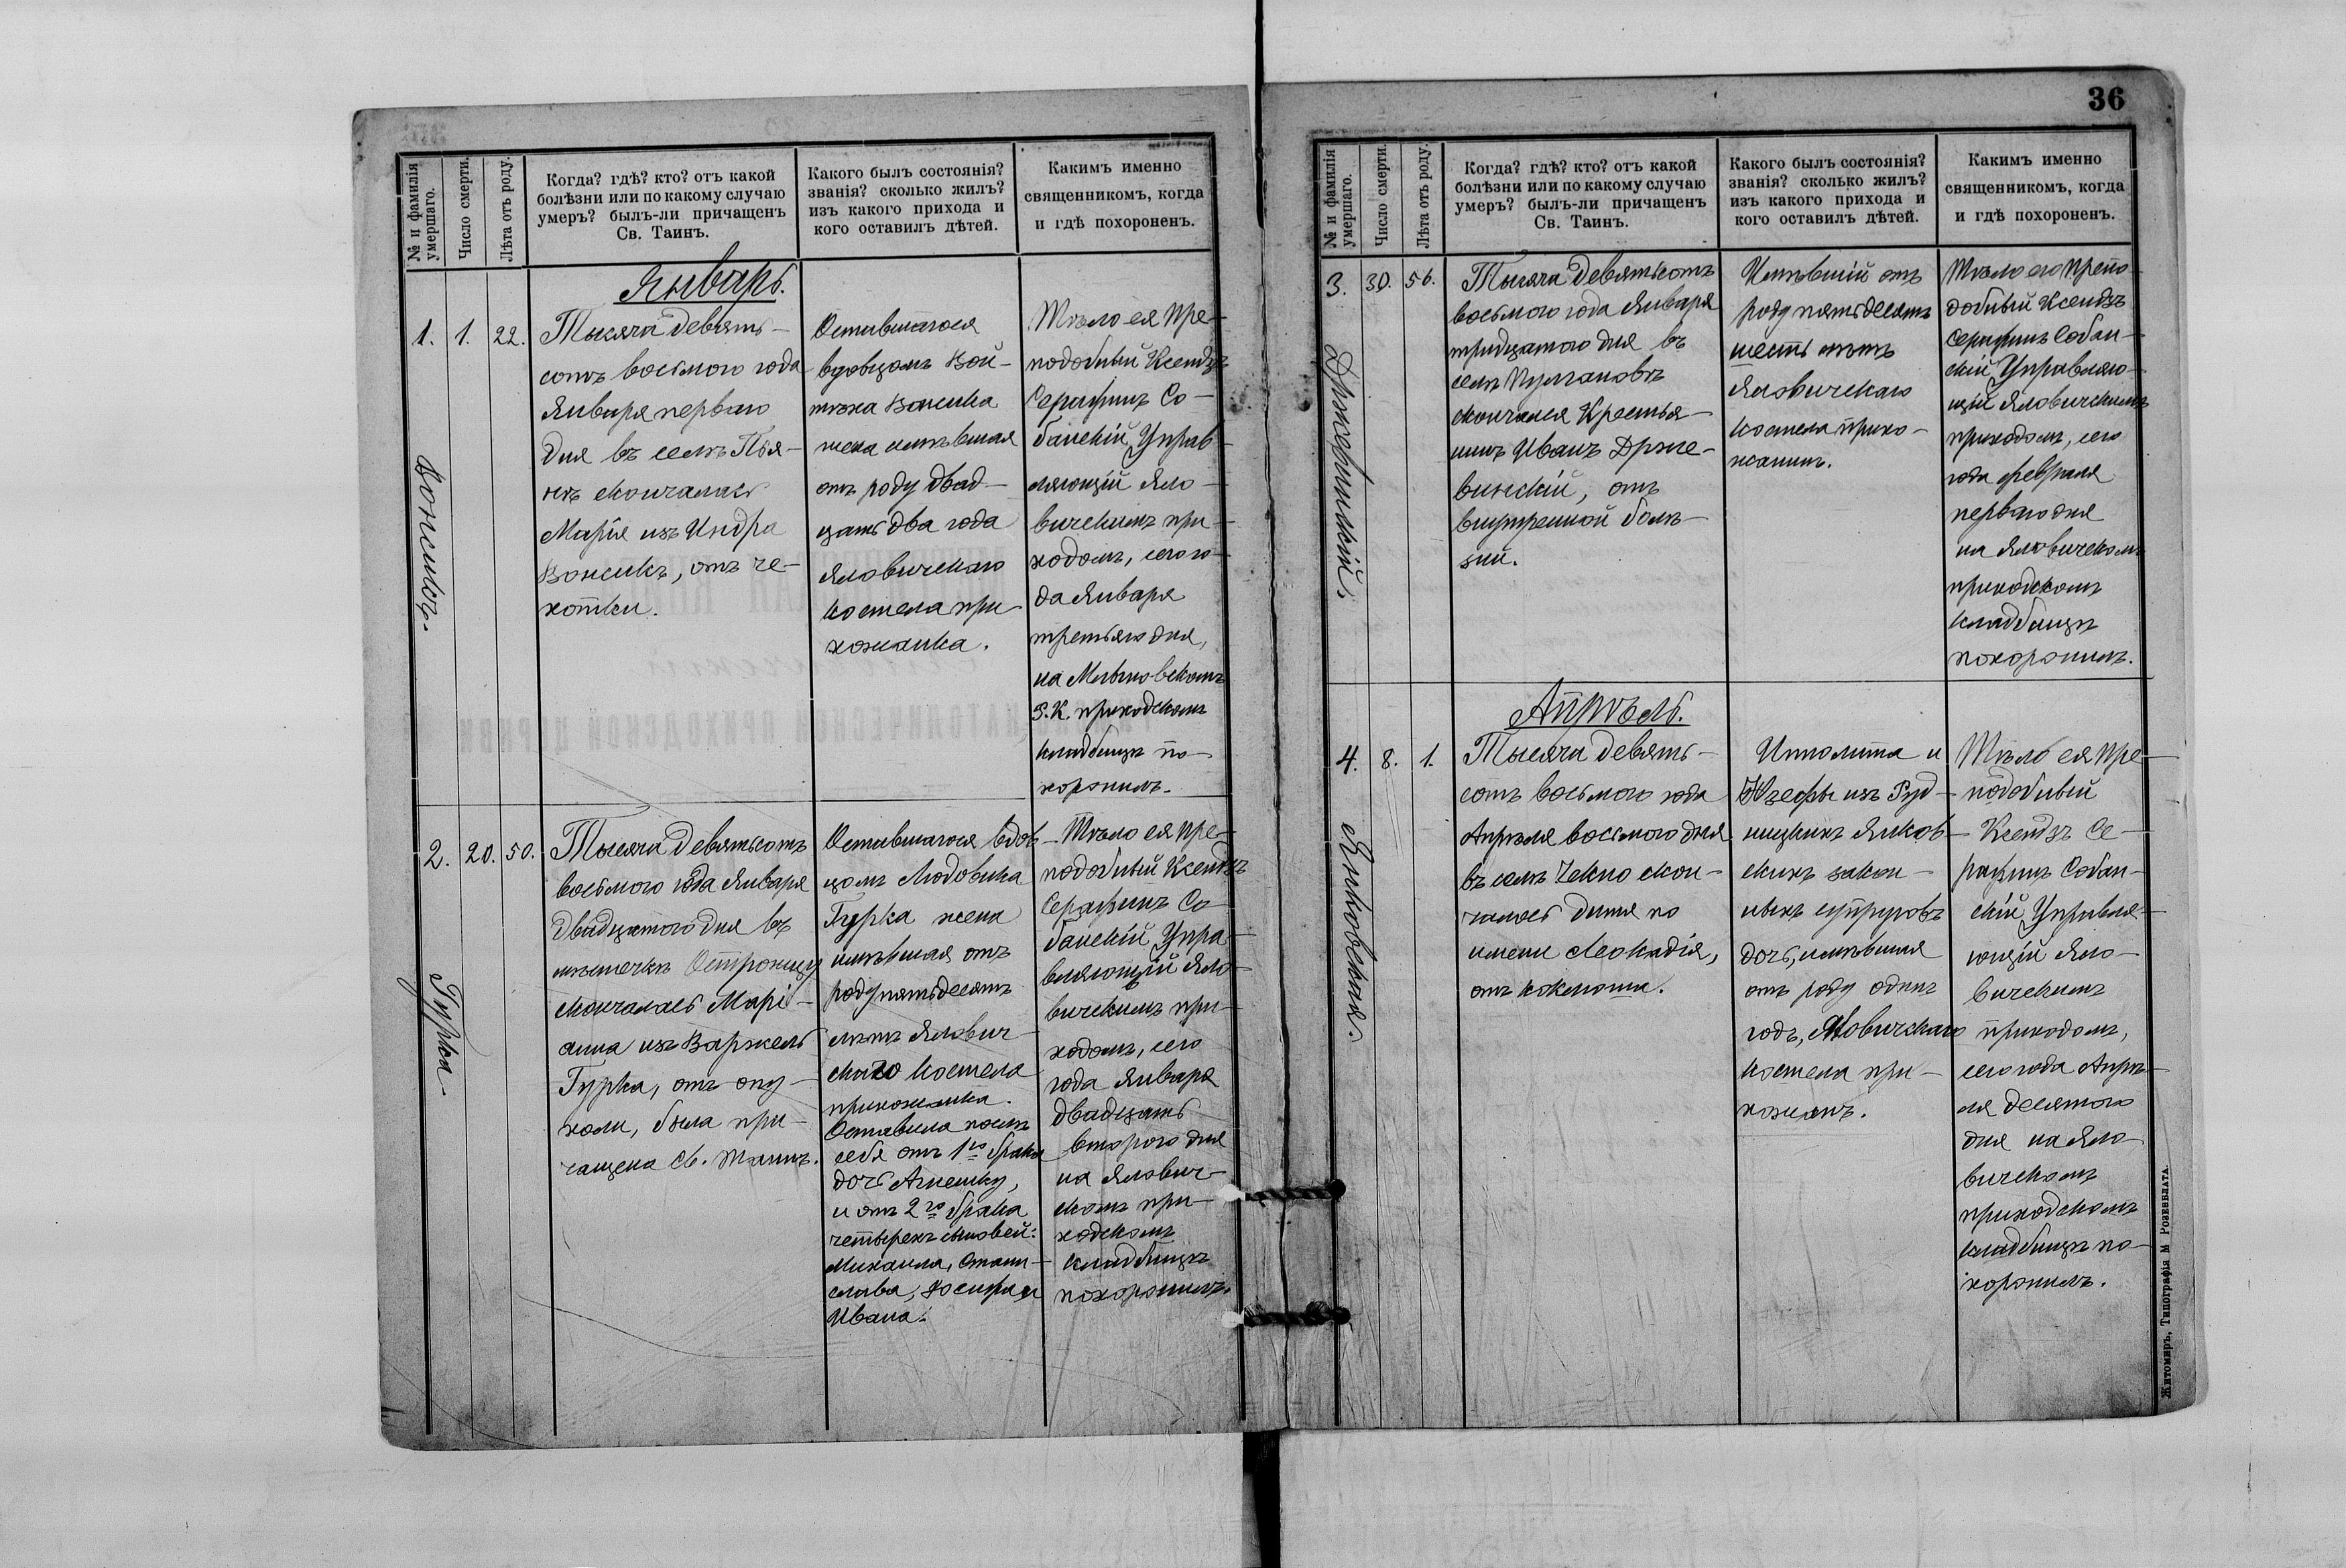 36
№ и фамилія умершаго.
Число смерти.
Лѣта отъ роду.
Когда? гдѣ? кто? отъ какой
болѣзни или по какому случаю
умеръ? былъ-ли причащенъ
Св. Таинъ.
Какого былъ состоянія?
званія? сколько жилъ?
изъ какого прихода и
кого оставилъ дѣтей.
Какимъ именно
священникомъ, когда
и гдѣ похороненъ.
Январь.
1.
Вонсикъ.
1.
22.
Тысяча девять-
сотъ восьмого года
Января перваго
дня въ селѣ Пья-
нѣ скончалась
Марія изъ Индра
Вонсикъ, отъ ча-
хотки.
Оставшагося
вдовцомъ Вой-
тѣха Вонсика
жена имѣвшая
отъ роду двад-
цать два года
Яловичскаго
костела при-
хожанка.
Тѣло ея Пре-
подобный Ксендзъ
Серафинъ Со-
банскій, Управ-
ляющій Яло-
вичскимъ при-
ходомъ, сего го-
да Января
третьяго дня,
на Млыновскомъ
Р.К. приходскомъ
кладбищѣ по-
хоронилъ.
2.
Гурка.
20.
50.
Тысяча девятьсотъ
восьмого года Января
двадцатого дня въ
мѣстечкѣ
скончалась Марі-
анна изъ Варжель
Гурка, отъ опу-
холи, была при-
чащена Св. Таинъ.
Оставшагося вдов-
цомъ Людовика
Гурка жена
имѣвшая отъ
роду пятьдесятъ
лѣтъ Ялович-
скаго костела
прихожанка.
Оставила послѣ
себя отъ 1го брака
дочь Агнешку,
и отъ 2го брака
четырехъ сыновей:
Михаила, Стани-
слава, Іосифа и
Ивана.
Тѣло ея Пре-
подобный Ксендзъ
Серафинъ Со-
банскій, Упра-
вляющій Яло-
вичскимъ при-
ходомъ, сего
года Января
двадцать
второго дня
на Ялович-
скомъ при-
ходскомъ
кладбищѣ
похоронилъ.
№ и фамилія умершаго.
Число смерти.
Лѣта отъ роду.
Когда? гдѣ? кто? отъ какой
болѣзни или по какому случаю
умеръ? былъ-ли причащенъ
Св. Таинъ.
Какого былъ состоянія?
званія? сколько жилъ?
изъ какого прихода и
кого оставилъ дѣтей.
Какимъ именно
священникомъ, когда
и гдѣ похороненъ.
3.
30.
56.
Тысяча девятьсотъ
восьмого года Января
тридцатого дня въ
селѣ
скончался Крестья-
нинъ Иванъ Држе-
винскій, отъ
внутренной болѣ-
зни.
Имѣвшій отъ
роду пятьдесятъ
шесть лѣтъ
Яловичскаго
костела прихо-
жанинъ.
Тѣло его Препо-
добный Ксендзъ
Серафинъ Собан-
скій, Управляю-
щій Яловичскимъ
приходомъ, сего
года февраля
перваго дня
на Яловичскомъ
приходскомъ
кладбищѣ
похоронилъ.
Апрѣль.
4.
Янковская.
8.
1.
Тысяча девять-
сотъ восьмого года
Апрѣля восьмого дня
въ селѣ Чекно скон-
чалось дитя по
имени Леокадія,
отъ коклюша.
Ипполита и
Юзефы изъ Руд-
ницкихъ Янков-
скихъ закон-
ныхъ супруговъ
дочь, имѣвшая
отъ роду одинъ
годъ, Яловичскаго
костела при-
хожанъ.
Тѣло ея Пре-
подобный
Ксендзъ Се-
рафинъ Собан-
скій, Управля-
ющій Яло-
вичскимъ
приходомъ,
сего года Апрѣ-
ля десятого
дня на Яло-
вичскомъ
приходскомъ
кладбищѣ по-
хоронилъ.
Житомиръ, Типографія М Розенблата.